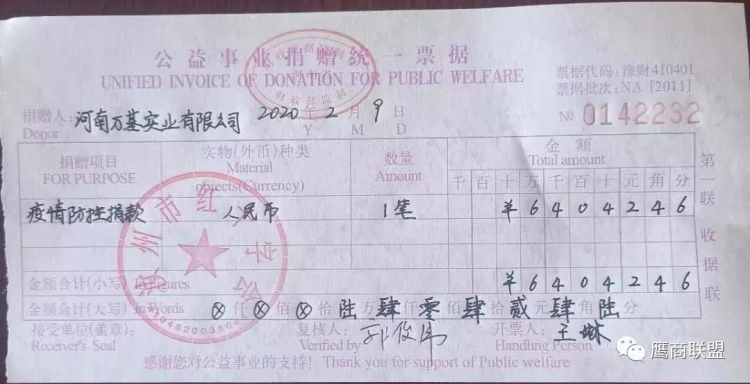 公益事业捐赠统一票据
UNIFIED INVOICE OF DONATION FOR PUBLIC WELFARE
票据代码: 豫财410401
票据批次: NA [2011]
捐赠人: 河南万基实业有限公司 2020年 2月 9日
Donor Y M D
№ 0142232
捐赠项目 实物(外币)种类 数量 金额
FOR PURPOSE Material Amount Total amount
objects(Currency) 千 百 十 万 千 百 十 元 角 分
疫情防控捐款 人民币 1笔 ¥ 6 4 0 4 2 4 6
金额合计(小写) In Figures ¥ 6 4 0 4 2 4 6
金额合计(大写) In Words ⊗仟⊗佰⊗拾陆万肆仟零佰肆拾贰元肆角陆分
接受单位(盖章): 复核人: 开票人: 王琳
Receiver's Seal Verified by Handling Person
感谢您对公益事业的支持! Thank you for support of Public welfare
第一联 收据联
鹰商联盟